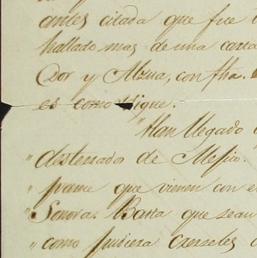 antes citada que fue
hallado mas de una carta
Dor y Mona, con fha.
es como sigue.
"Han llegado
" desterrados de Mejico.
" prame que vienen con e
" Senoras Basta que sean
" como pudiera creerseles